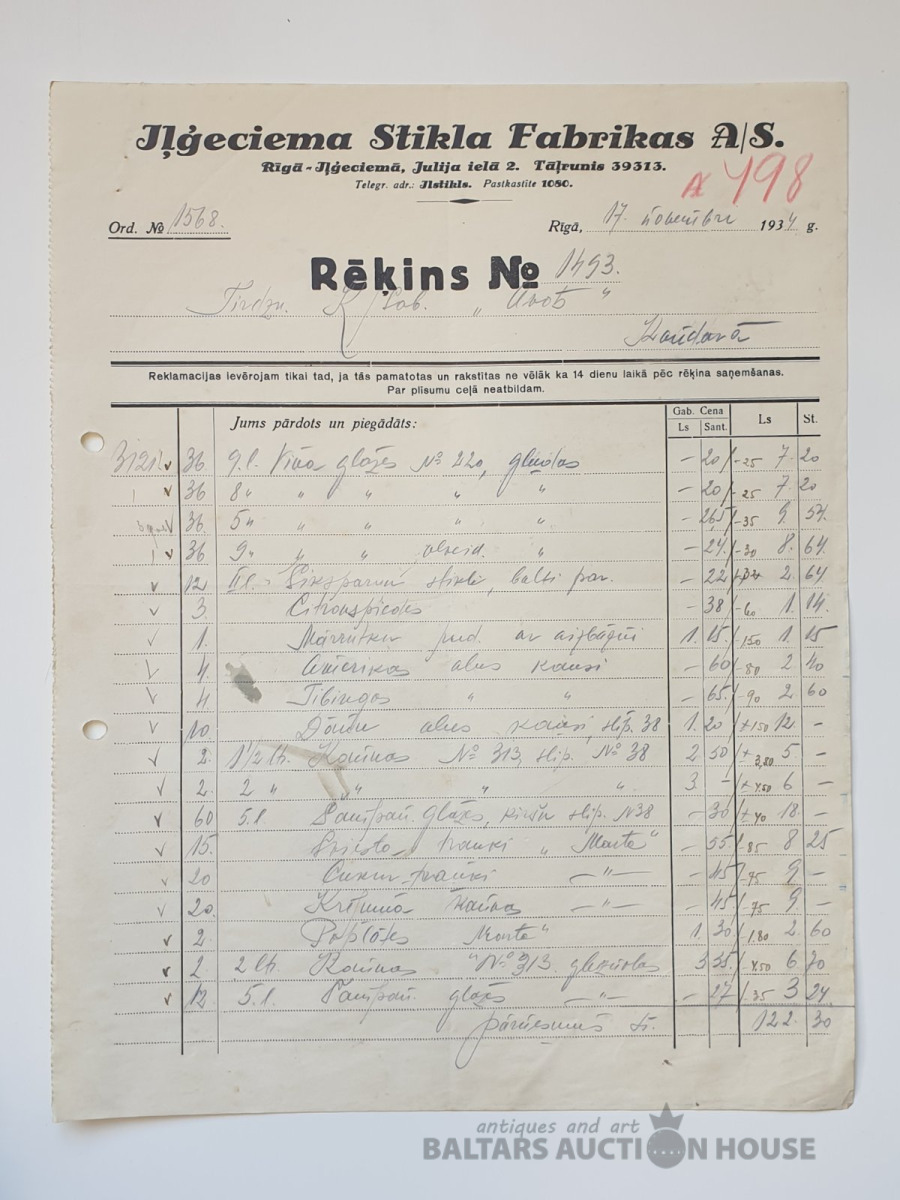 Iļģeciema Stikla Fabrikas A/S.
Rīgā-Iļģeciemā, Julija ielā 2. Tāļrunis 39313.
Telegr. adr.: Ilstikls. Pastkastīte 1080.
498
Ord. № 1568. Rīgā, 17. novembri 1934 g.
Rēķins № 1493.
Tirdzn. K/Sab. "Avots"
Kandavā
Reklamacijas ievērojam tikai tad, ja tās pamatotas un rakstītas ne vēlāk ka 14 dienu laikā pēc rēķina saņemšanas.
Par plīsumu ceļā neatbildam.
Jums pārdots un piegādāts: Gab. Cena Ls Sant. Ls St.
36 9.l. Vīna glāzes № 220, - 20 -25 7. 20
36 8 " " " " " - 20 -25 7. 20
36. 5 " " " " " - 26,5 -35 9. 54.
36 9 " " " " - 24. -30 8. 64.
12 - 22 2. 64
3. Citronspiedes - 38 -60 1. 14.
1. Mārrutku ar 1. 15. -150 1 15
4. Amerikas alus kausi - 60 -80 2 40
4 Tibingas " " - 65. -90 2 60
10. alus kausi, slīp. 38 1. 20 +150 12 -
2. 1 1/2 lt. Kannas № 313, slip. № 38 2 50 5 -
2. 2 " " " " 3. - 6 -
60 5.l Šampan. glāzes, slip. N38 - 30 18. -
15. Sviesta trauki "Marta" - 55 -85 8 25
20 Cukur trauki —"— - 45 -75 9 -
20. Krējuma kannas —"— - 45 -75 9 -
2. "Marta" 1 30 -1.80 2. 60
2. 2 lt. Kannas "№ 313 3 35. 6 70
12 5.l. Šampan. glāzes —"— - 27 -35 3 24
122. 30
antiques and art
BALTARS AUCTION HOUSE